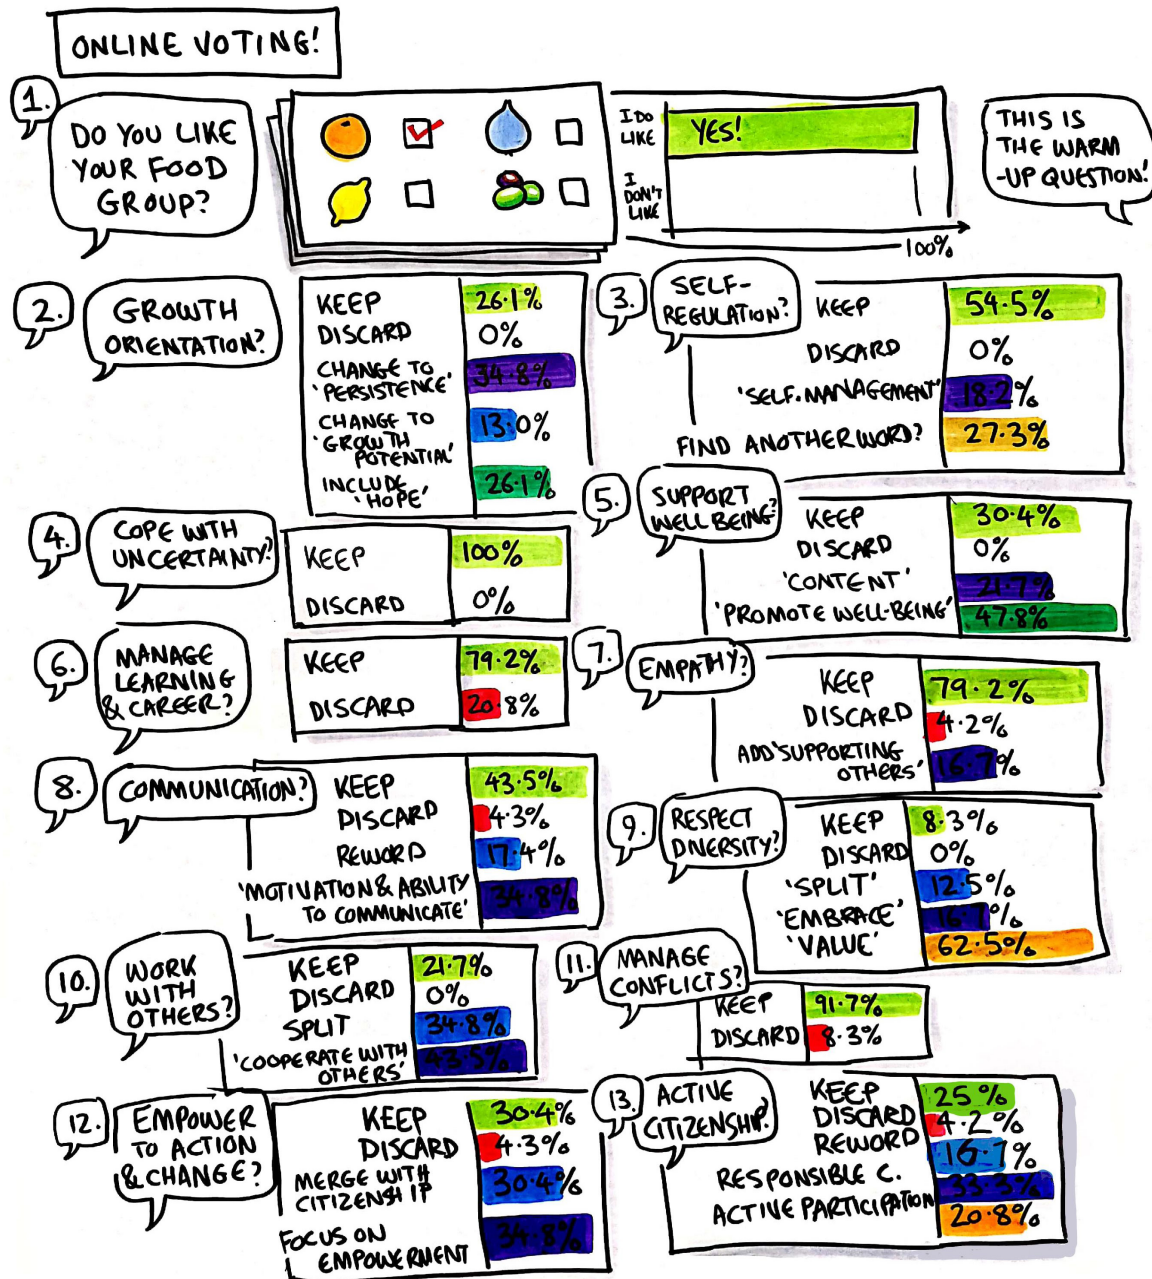 ONLINE VOTING!
1.
DO YOU LIKE
YOUR FOOD
GROUP?
I DO
LIKE
YES!
I
DON'T
LIKE
100%
THIS IS
THE WARM
-UP QUESTION!
2.
GROWTH
ORIENTATION?
KEEP 26.1%
DISCARD 0%
CHANGE TO
'PERSISTENCE' 34.8%
CHANGE TO
'GROWTH
POTENTIAL' 13.0%
INCLUDE
'HOPE' 26.1%
3.
SELF-
REGULATION?
KEEP 54.5%
DISCARD 0%
'SELF-MANAGEMENT' 18.2%
FIND ANOTHER WORD? 27.3%
4.
COPE WITH
UNCERTAINTY?
KEEP 100%
DISCARD 0%
5.
SUPPORT
WELL BEING?
KEEP 30.4%
DISCARD 0%
'CONTENT' 21.7%
'PROMOTE WELL-BEING' 47.8%
6.
MANAGE
LEARNING
& CAREER?
KEEP 79.2%
DISCARD 20.8%
7.
EMPATHY?
KEEP 79.2%
DISCARD 4.2%
ADD 'SUPPORTING
OTHERS' 16.7%
8.
COMMUNICATION?
KEEP 43.5%
DISCARD 4.3%
REWORD 17.4%
'MOTIVATION & ABILITY
TO COMMUNICATE' 34.8%
9.
RESPECT
DIVERSITY?
KEEP 8.3%
DISCARD 0%
'SPLIT' 12.5%
'EMBRACE' 16.7%
'VALUE' 62.5%
10.
WORK
WITH
OTHERS?
KEEP 21.7%
DISCARD 0%
SPLIT 34.8%
'COOPERATE WITH
OTHERS' 43.5%
11.
MANAGE
CONFLICTS?
KEEP 91.7%
DISCARD 8.3%
12.
EMPOWER
TO ACTION
& CHANGE?
KEEP 30.4%
DISCARD 4.3%
MERGE WITH
CITIZENSHIP 30.4%
FOCUS ON
EMPOWERMENT 34.8%
13.
ACTIVE
CITIZENSHIP?
KEEP 25%
DISCARD 4.2%
REWORD 16.7%
RESPONSIBLE C. 33.3%
ACTIVE PARTICIPATION 20.8%